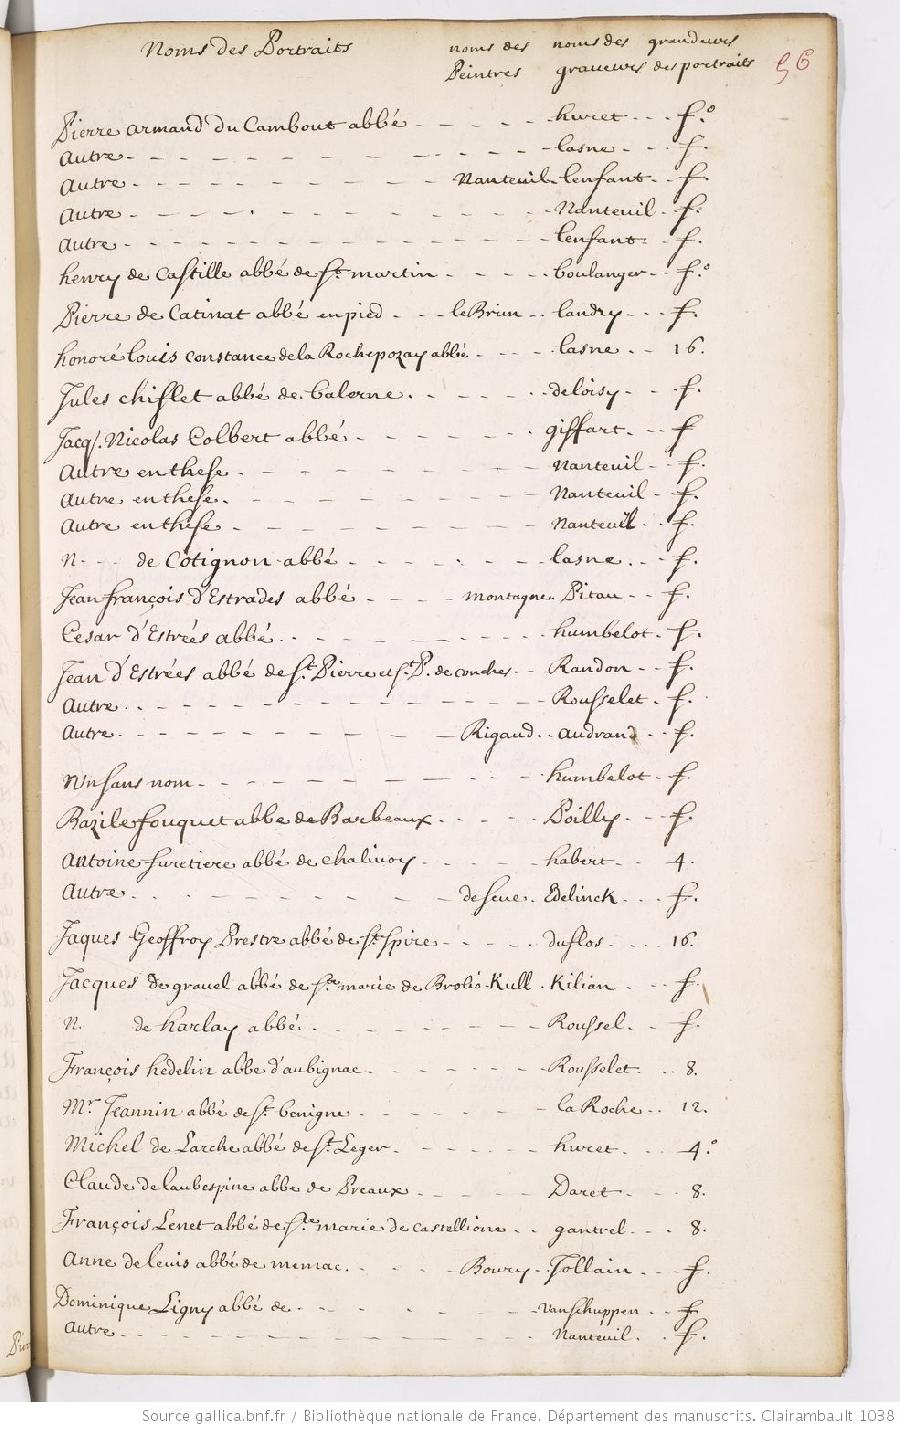 Noms des Portraits noms des Peintres noms des graveurs grandeurs des portraits 56
Pierre armand du Cambout abbé huret f.o
Autre lasne f.
Autre Nanteuil lenfant f.
Autre Nanteuil f.
Autre lenfant f.
henry de Castille abbé de St. martin boulanger f.o
Pierre de Catinat abbé en pied le Brun landry f.
honoré louis constance de la Rochepozay abbé lasne 16.
Jules chiflet abbé de balerne deloisy f.
Jacq. Nicolas Colbert abbé giffart f
Autre en these nanteuil f.
Autre en these Nanteuil f.
Autre en these Nanteuil f.
N. de Cotignon abbé lasne f.
Jean françois d'Estrades abbé montagne Pitau f.
Cesar d'Estrées abbé humbelot f.
Jean d'Estrées abbé de St. Pierre et St. P. de conches Randon f.
Autre Rousselet f.
Autre Rigaud audrand f.
Un sans nom humbelot f.
Bazile fouquet abbe de Barbeaux Poilly f.
Antoine furetiere abbé de chalivoy habert 4.
Autre de seve Edelinck f.
Jaques Geoffroy Prestre abbé de St. Spire duflos 16.
Jacques de gravel abbé de Ste. marie de Brolis Kull Kilian f.
N. de harlay abbé Roussel f.
François hedelin abbe d'aubignac Rousselet 8.
Mr. Jeannin abbé de St. benigne la Roche 12.
Michel de Larche abbé de St. Leger huret 4.o
Claude de laubespine abbe de Preaux Daret 8.
François Lenet abbé de Ste. marie de castellione gantrel 8.
Anne de levis abbé de memac Boury Jollain f.
Dominique Ligny abbé de vanschuppen f.
Autre Nanteuil f.
Source gallica.bnf.fr / Bibliothèque nationale de France. Département des manuscrits. Clairambault 1038